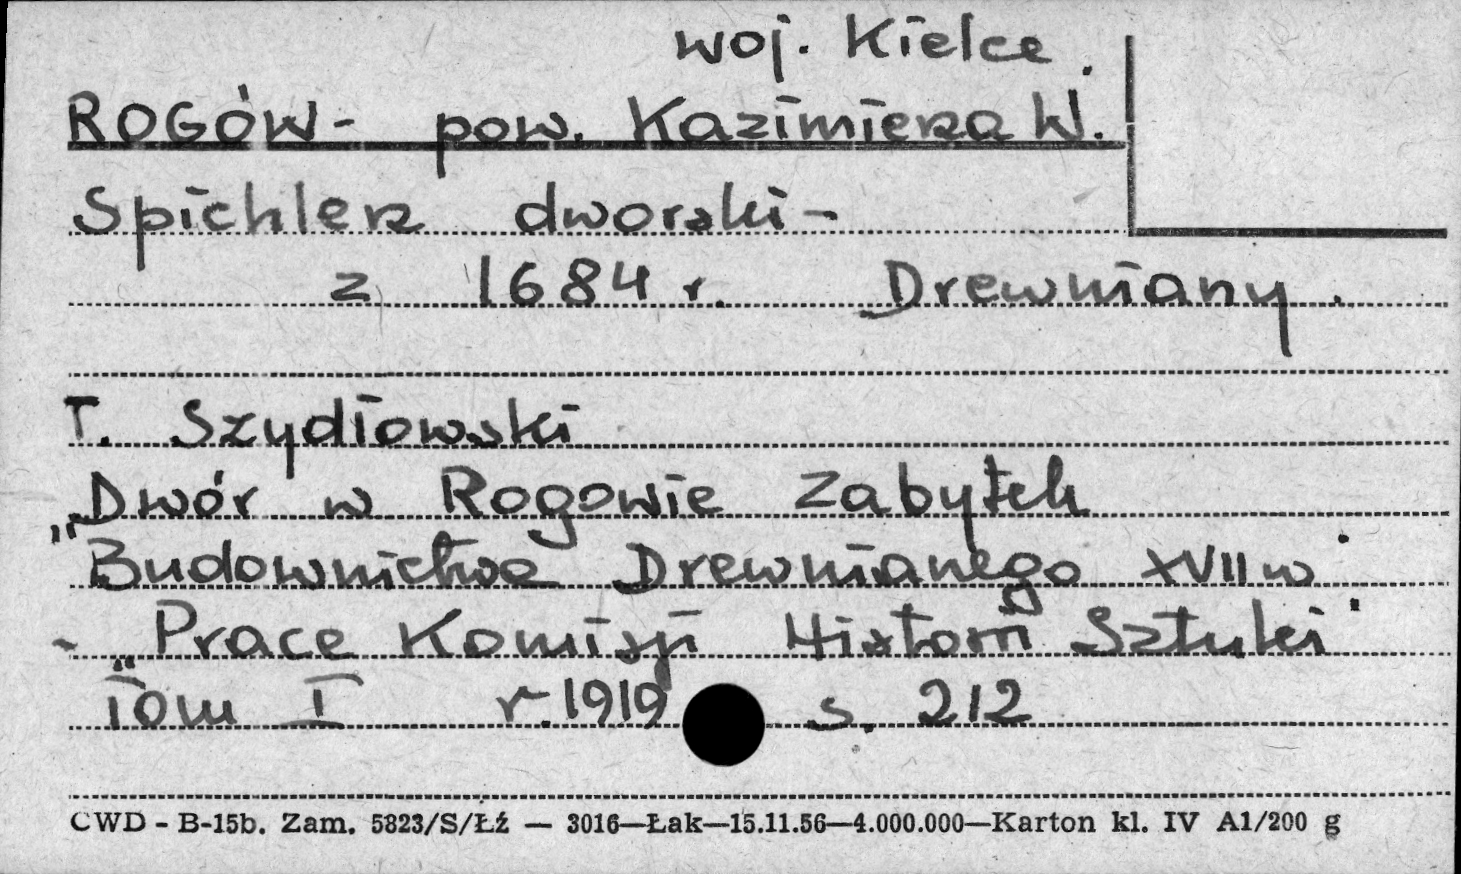 woj. Kielce.
ROGÓW - pow. Kazimierza W.
Spichlerz dworski -
z 1684 r. Drewniany.
T. Szydłowski
"Dwór w Rogowie Zabytek
Budownictwa Drewnianego XVII w"
- "Prace Komisji Historii Sztuki"
Tom I r. 1919 s. 212
CWD - B-15b. Zam. 5823/S/Łź — 3016—Łak—15.11.56—4.000.000—Karton kl. IV A1/200 g